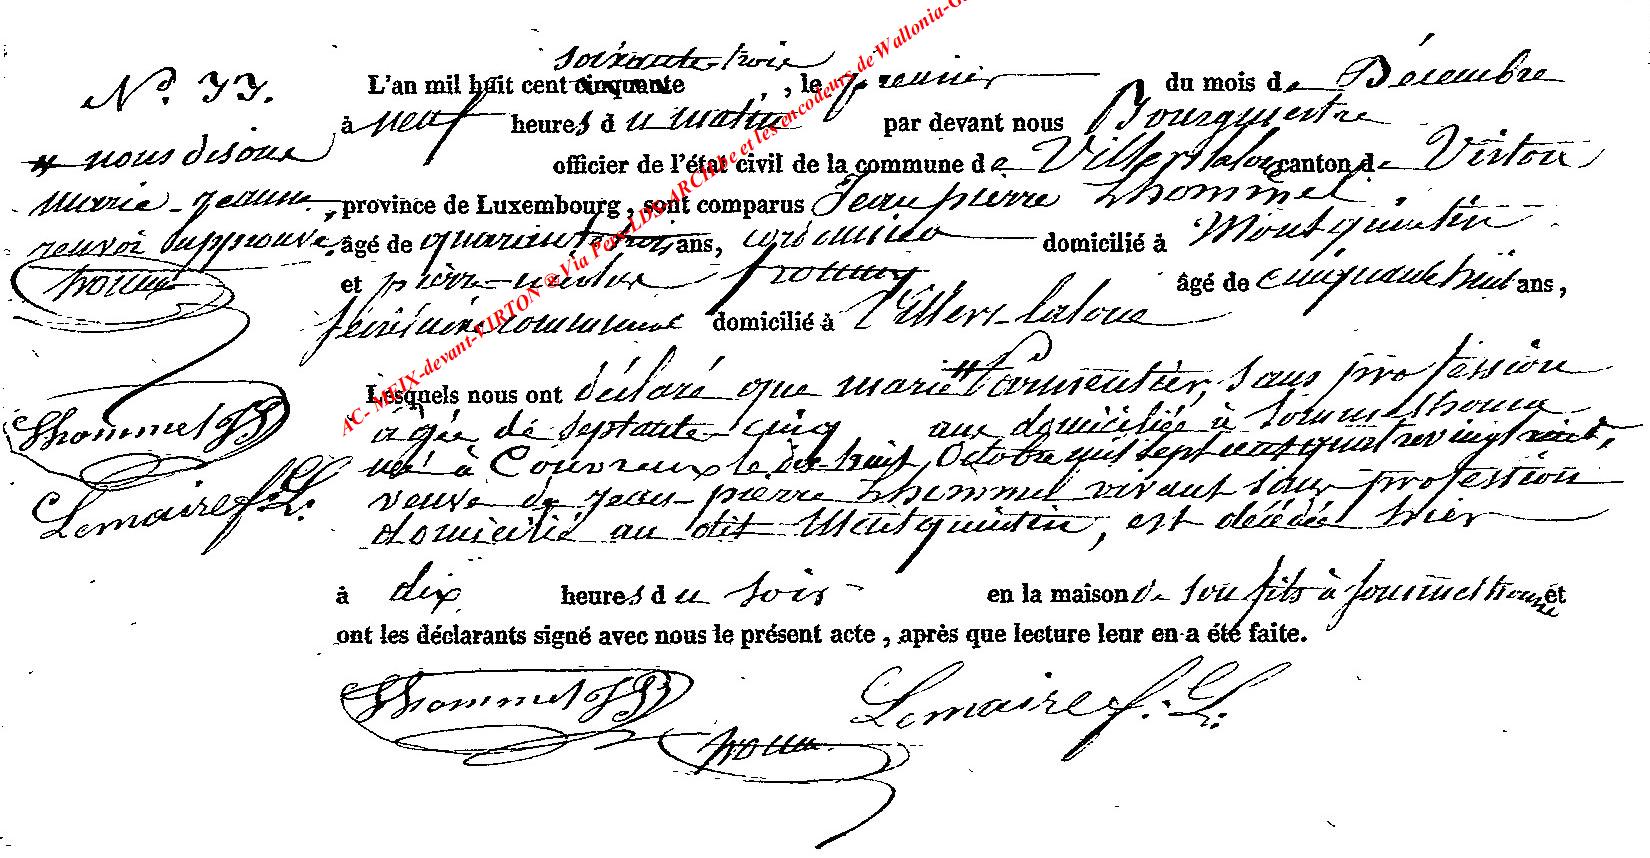 N° 33.
# nous disons
marie-jeanne,
renvoi approuvé.
Lhommel JP
Lemaire f. L.
soixante trois
L'an mil huit cent cinquante , le premier du mois de Décembre
à neuf heures du matin par devant nous Bourgmestre
officier de l'état civil de la commune de Villers laloue canton de Virton
province de Luxembourg, sont comparus Jean pierre Lhommel
âgé de quarante trois ans, domicilié à Montquintin
et pierre-nicolas âgé de cinquante huit ans,
secrétaire communal domicilié à Villers-laloue
Lesquels nous ont déclaré que marie # Parmentier, sans profession
agée de septante-cinq ans domiciliée à Sommethonne
née à Couvreux le dix-huit Octobre mil sept cent quatrevingt
veuve de Jean-pierre Lhommel vivant sans profession
domicilié au dit Montquintin, est décédée hier
à dix heures du soir en la maison de son fils à Sommethonne et
ont les déclarants signé avec nous le présent acte, après que lecture leur en a été faite.
Lhommel JP Lemaire f. L.
AC- MEIX-devant-VIRTON ® Via Pers-LDS-ARCHive et les encodeurs de Wallonia-G